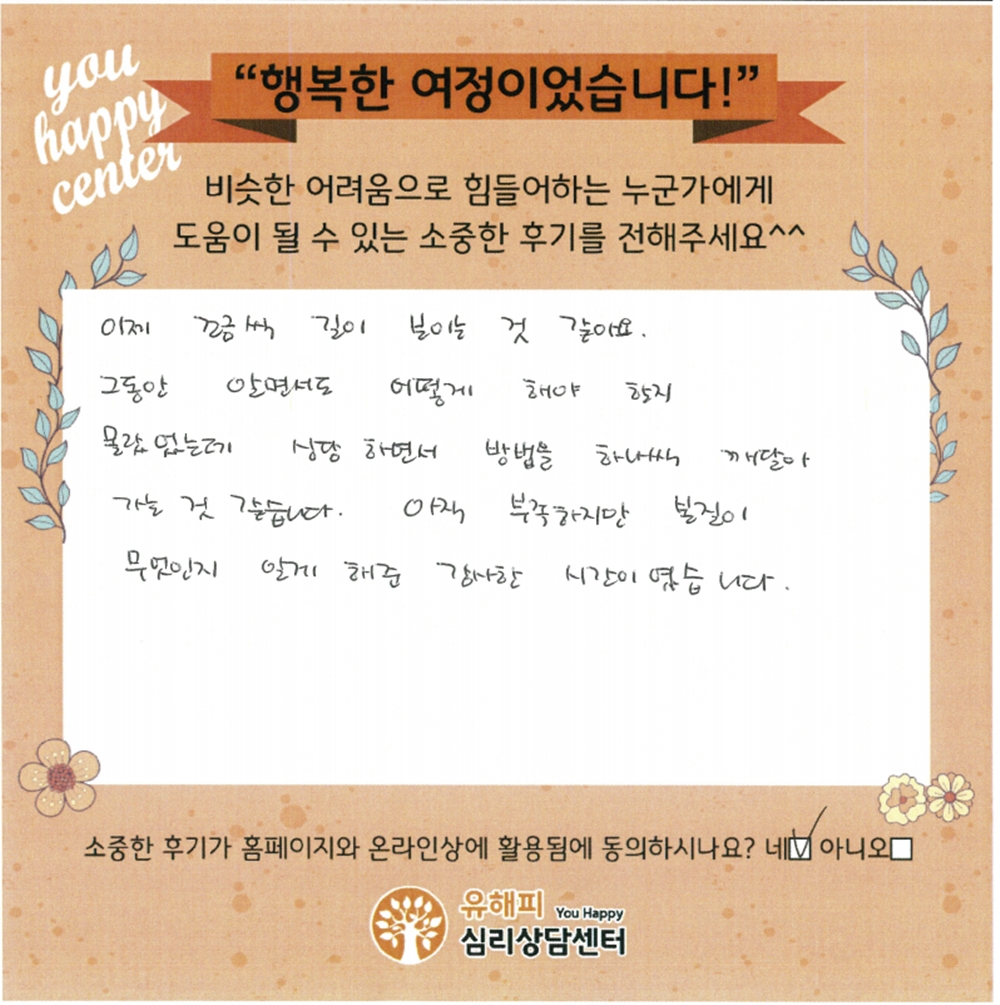 you
happy
center
“행복한 여정이었습니다!”
비슷한 어려움으로 힘들어하는 누군가에게
도움이 될 수 있는 소중한 후기를 전해주세요^^
이제 조금씩 길이 보이는 것 같아요.
그동안 알면서도 어떻게 해야 할지
몰랐었는데 상담 하면서 방법을 하나씩 깨달아
가는 것 같습니다. 아직 부족하지만 본질이
무엇인지 알게 해준 감사한 시간이 였습니다.
소중한 후기가 홈페이지와 온라인상에 활용됨에 동의하시나요? 네 아니오
유해피 You Happy
심리상담센터